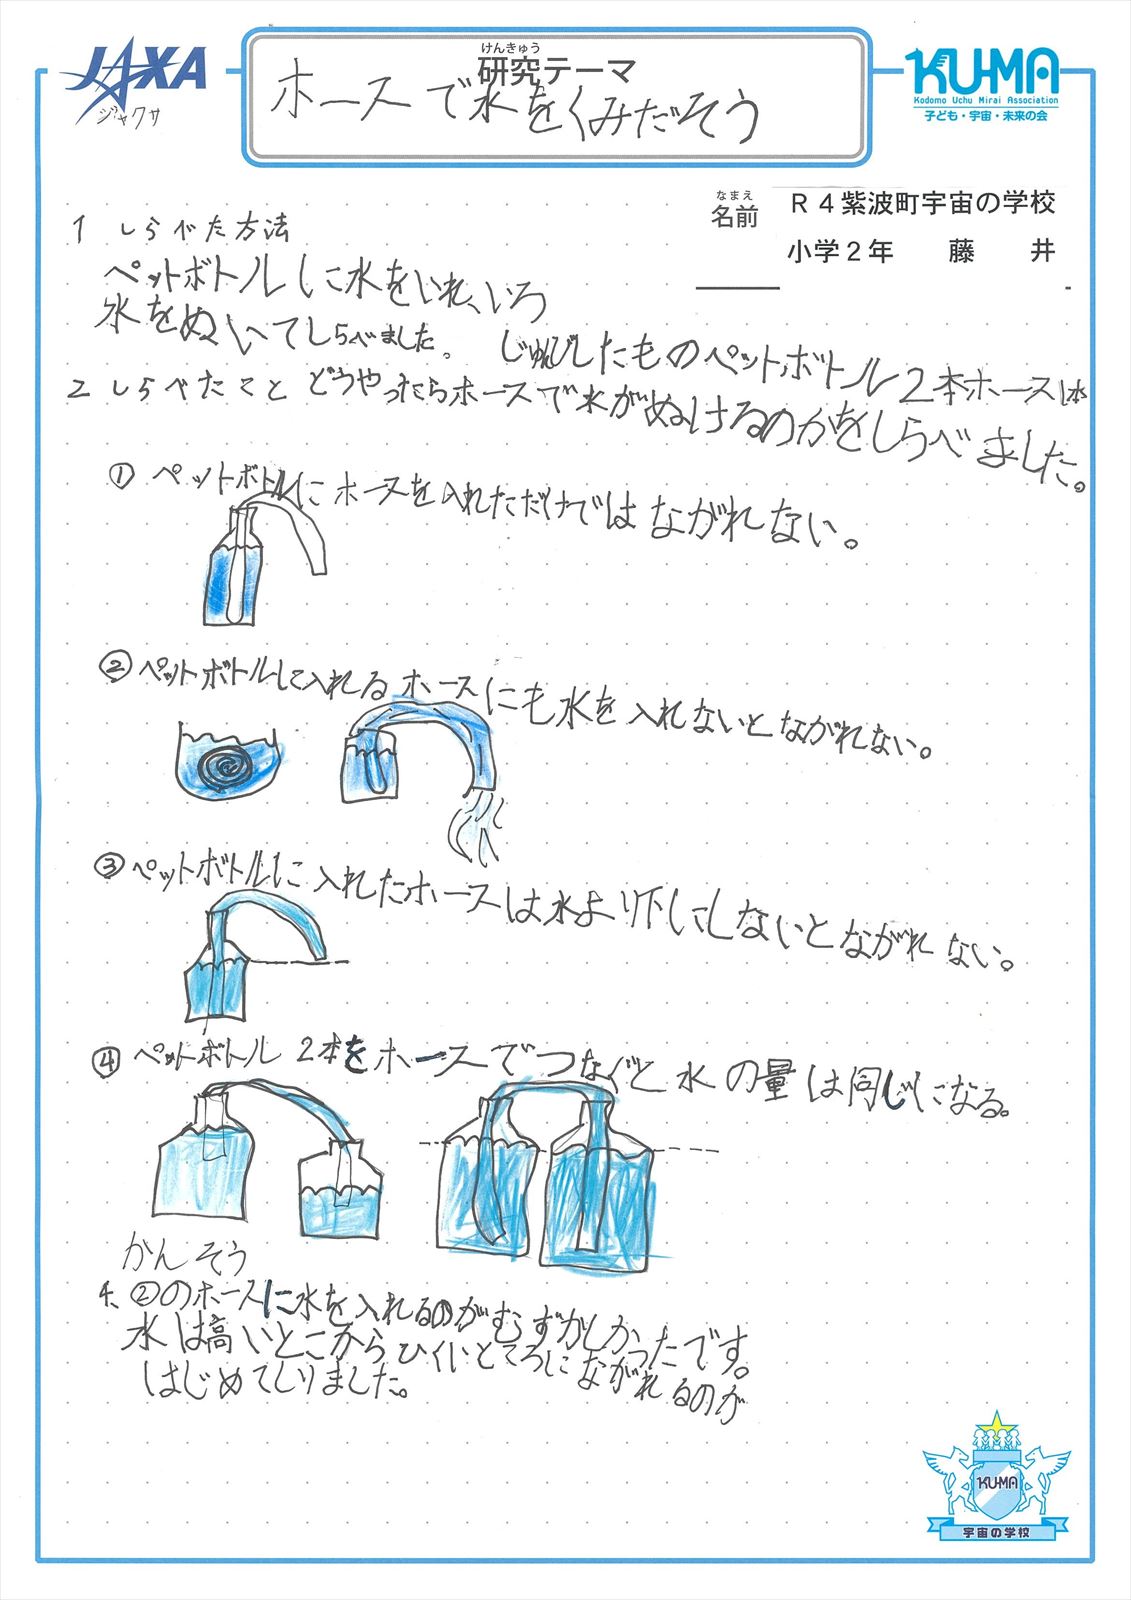 JAXA
ジャクサ
けんきゅう
研究テーマ
ホースで水をくみだそう
KU-MA
Kodomo Uchu Mirai Association
子ども・宇宙・未来の会
なまえ
名前
R4紫波町宇宙の学校
小学2年 藤 井
1 しらべた方法
ペットボトルに水をいれ、いろ
水をぬいてしらべました。
じゅんびしたものペットボトル2本ホース1本
2 しらべたこと どうやったらホースで水がぬけるのかをしらべました。
① ペットボトルにホースを入れただけではながれない。
② ペットボトルに入れるホースにも水を入れないとながれない。
③ ペットボトルに入れたホースは水より下にしないとながれない。
④ ペットボトル2本をホースでつなぐと水の量は同じになる。
かんそう
4、②のホースに水を入れるのがむずかしかったです。
水は高いとこからひくいところにながれるのが
はじめてしりました。
KU-MA
宇宙の学校